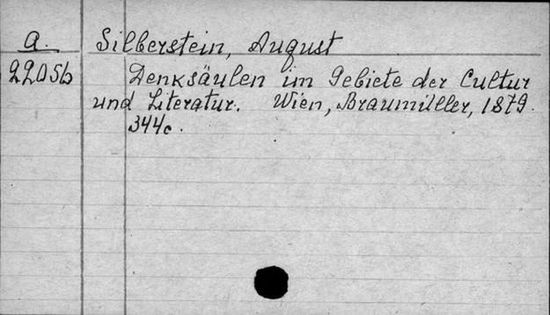 a. Silberstein, August
22056 Denksäulen im Gebiete der Cultur
und Literatur. Wien, Braumüller, 1879.
344c.